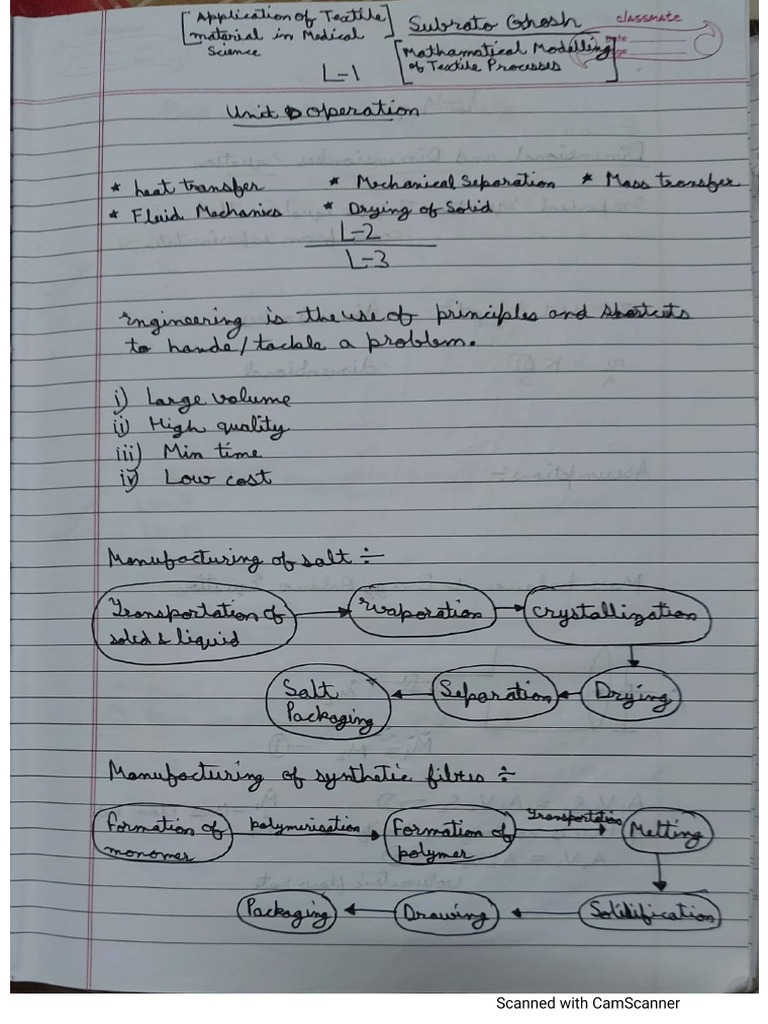 [Application of Textile material in Medical Science] Subrato Ghosh
classmate
[Mathamatical Modelling of Textile Processes]
L-1
Unit operation
* heat transfer * Mechanical Separation * Mass transfer
* Fluid Mechanics * Drying of Solid
L-2
L-3
Engineering is the use of principles and shortcuts
to hande/tackle a problem.
i) Large volume
ii) High quality
iii) Min time
iv) Low cost
Manufacturing of salt ÷
Transportation of solid & liquid → Evaporation → Crystallization
Salt Packaging ← Separation ← Drying
Manufacturing of synthetic fibres ÷
Formation of monomer polymerisation → Formation of polymer Transportation → Melting
Packaging ← Drawing ← Solidification
Scanned with CamScanner